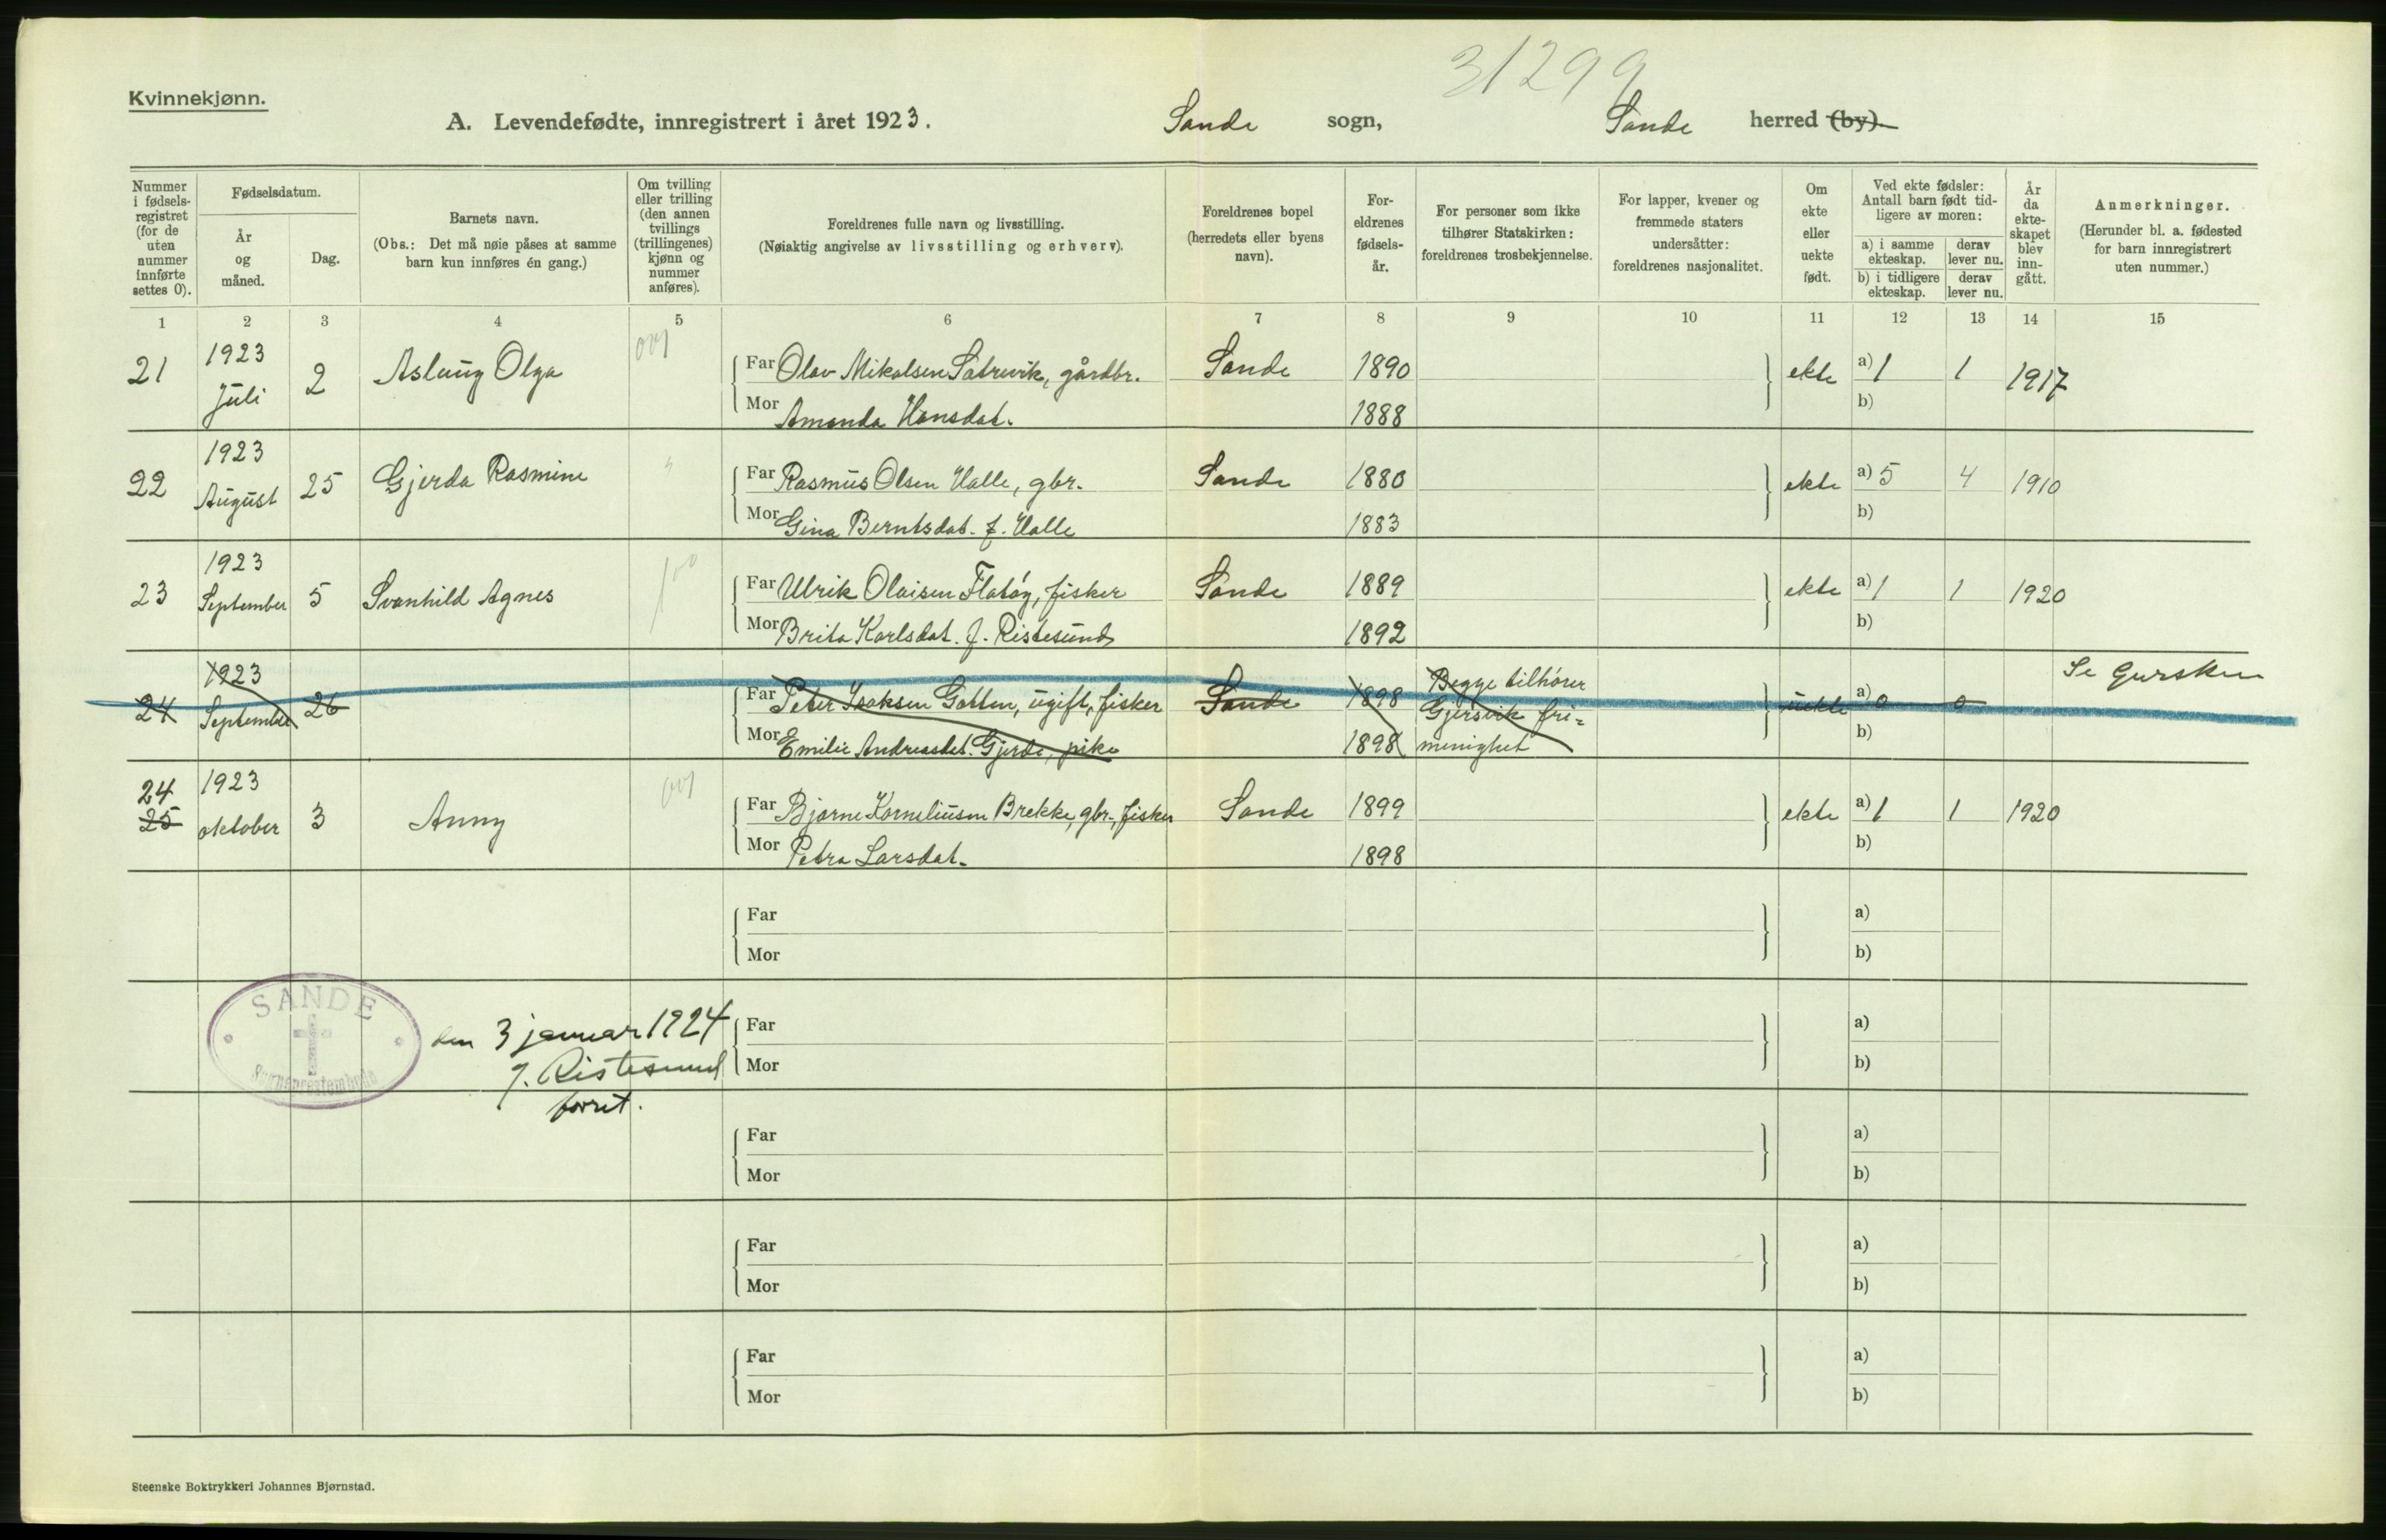 31299
Kvinnekjønn.
A. Levendefødte, innregistrert i året 1923. Sande sogn, Sande herred (by).
Nummer i fødsels-registret (for de uten nummer innførte settes 0).
Fødselsdatum.
År og måned.
Dag.
Barnets navn.
(Obs.: Det må nøie påses at samme barn kun innføres én gang.)
Om tvilling eller trilling (den annen tvillings (trillingenes) kjønn og nummer anføres).
Foreldrenes fulle navn og livsstilling.
(Nøiaktig angivelse av livsstilling og erhverv).
Foreldrenes bopel (herredets eller byens navn).
For-eldrenes fødsels-år.
For personer som ikke tilhører Statskirken: foreldrenes trosbekjennelse.
For lapper, kvener og fremmede staters undersåtter: foreldrenes nasjonalitet.
Om ekte eller uekte født.
Ved ekte fødsler: Antall barn født tid-ligere av moren:
a) i samme ekteskap.
derav lever nu.
b) i tidligere ekteskap.
derav lever nu.
År da ekte-skapet blev inn-gått.
Anmerkninger.
(Herunder bl. a. fødested for barn innregistrert uten nummer.)
1 2 3 4 5 6 7 8 9 10 11 12 13 14 15
21 1923 Juli 2 Aslaug Olga Far Olav Mikalsen Sætrevik, gårdbr. Sande 1890 ekte a) 1 1 1917
Mor Amanda Hansdat. 1888 b)
22 1923 August 25 Gjerda Rasmine Far Rasmus Olsen Halle, gbr. Sande 1880 ekte a) 5 4 1910
Mor Gina Berntsdat. f. Halle 1883 b)
23 1923 September 5 Svanhild Agnes Far Ulrik Olaisen Flatøy, fisker Sande 1889 ekte a) 1 1 1920
Mor Brita Karlsdat. f. Ristesund 1892 b)
24 1923 September 26 Far Peter Isaksen Gotten, ugift, fisker Sande 1898 Begge tilhører Gjersvik fri= uekte a) 0 0 Se Gursken
Mor Emilie Andreasdat. Gjerde, pike 1898 menighet b)
24
25 1923 oktober 3 Anny Far Bjarne Korneliusen Brekke, gbr., fisker Sande 1899 ekte a) 1 1 1920
Mor Petra Larsdat. 1898 b)
Far a)
Mor b)
SANDE
Sogneprestembede
den 3 januar 1924
J. Ristesund
forret.
Far a)
Mor b)
Far a)
Mor b)
Far a)
Mor b)
Far a)
Mor b)
Steenske Boktrykkeri Johannes Bjørnstad.